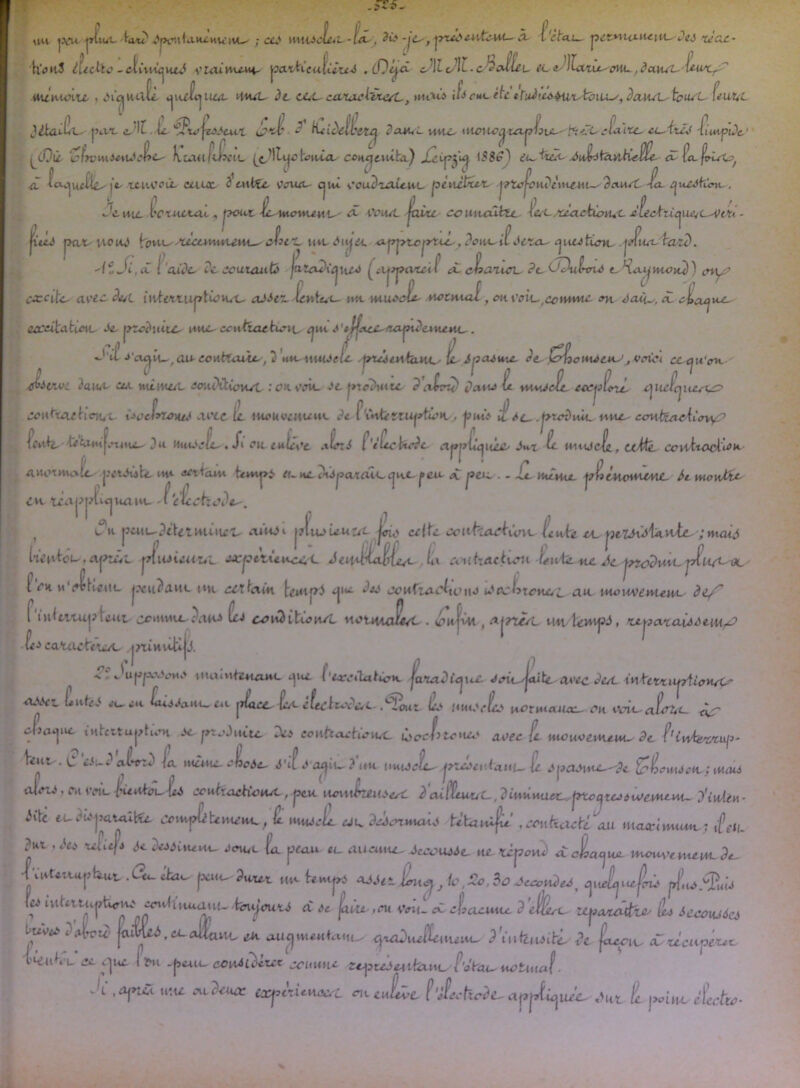 - 526 -
un peu plus tard spontanément ; ces muscles-là, dis-je, présentent à l'état permanent des réac-
tions électro-cliniques vraiment particulières. Déjà M.M. Ballet et Marie ont, dans leur
mémoire, signalé quelques uns de ces caractères, mais ils ont été étudiés surtout, dans tous leurs
détails, par M. le Professeur Erb d'Heidelberg dans une monographie très claire et très limpide
(Die Thomsen'sche Krankheit (Myotonia congenita) Leipzig 1886) et très substantielle à la fois,
à laquelle je renvoie ceux d'entre vous qui voudraient pénétrer profondément dans la question.
Je me bornerai, pour le moment à vous faire connaître les réactions électriques, véri-
fiées par nous tout récemment chez un sujet approprié, dont il sera question plus tard.
1º Si, à l'aide de courants faradiques (appareil à chariot de Dubois Raymond) on
excite avec des interruptions assez lentes un muscle normal, on voit, comme on sait, à chaque
excitation se produire une contraction qui s'efface rapidement.
S'il s'agit, au contraire, d'un muscle présentant le spasme de Thomsen, voici ce qu'on
observe dans ces mêmes conditions : on voit se produire d'abord dans le muscle exploré quelques
contractions isochrones avec le mouvement de l'interruption, puis il se produit une contraction
lente, tétaniforme du muscle. Si on enlève alors l'électrode appliquée sur le muscle, cette contraction
anormale persiste un certain temps et ne disparaît que peu à peu. - Le même phénomène se montre
en réappliquant l'électrode.
On peut déterminer ainsi plusieurs fois cette contraction lente et persistante ; mais
bientôt, après plusieurs expériences semblables, la contraction lente ne se produit plus et
l'on n'obtient pendant un certain temps que des contractions isochrones au mouvement de
l'interrupteur comme dans les conditions normales. Enfin, après un temps, reparaissent
les caractères primitifs.
2º Supposons maintenant que l'excitation faradique soit faite avec des interruptions
assez lentes et en laissant en place les électrodes. Pour les muscles normaux on voit alors à
chaque interruption se produire des contractions isochrones avec le mouvement de l'interrup-
teur. C'est d'abord la même chose s'il s'agit d'un muscle présentant le spasme de Thomsen ; mais
alors, on voit bientôt les contractions, peu nombreuses d'ailleurs, diminuer progressivement d'inten-
sité et disparaître complètement, le muscle est désormais tétanifié, contracté au maximum ; il est
dur, ses reliefs se dessinent sous la peau et aucune secousse ne répond à chaque mouvement de
l'interrupteur. Cet état peut durer un temps assez long, 10, 20, 30 secondes, quelquefois plus. Puis
les interruptions continuant toujours à se faire, on voit à chacune d'elles reparaître les secousses
brèves d'abord faibles, et allant en augmentant graduellement d'intensité de façon à récupérer
bientôt ce que l'on peut considérer comme représentant l'état normal.
Si, après une ou deux expériences on enlève l'électrode appliquée sur le point électro-